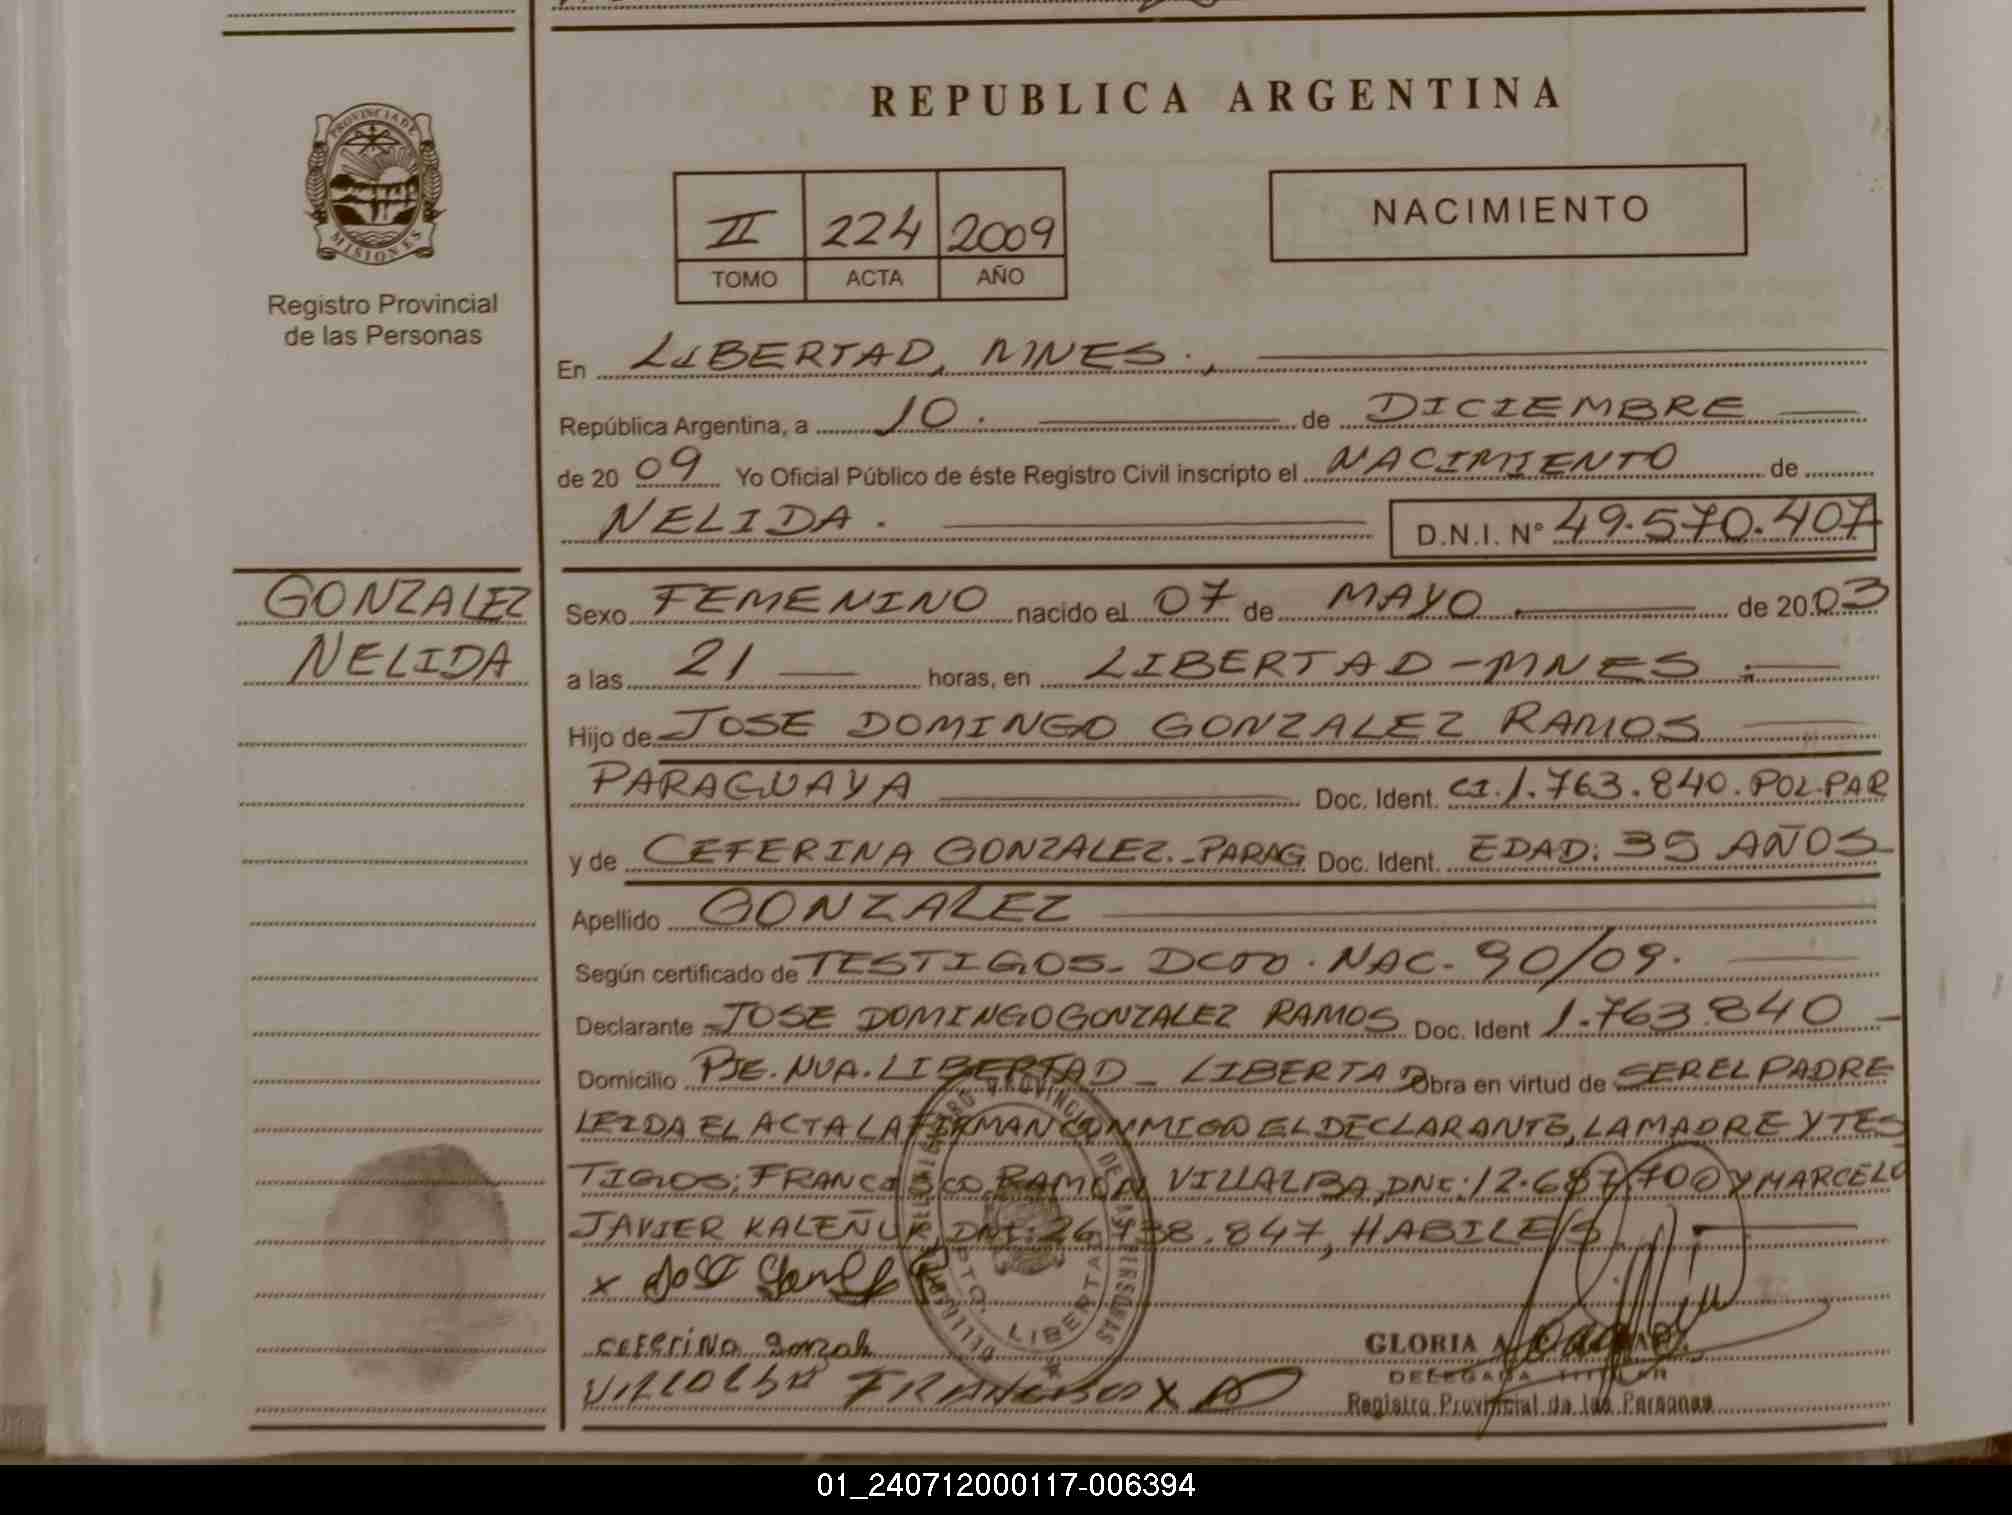 REPUBLICA ARGENTINA
PROVINCIA DE
MISIONES
Registro Provincial
de las Personas
II 224 2009
TOMO ACTA AÑO
NACIMIENTO
En LIBERTAD, MNES.,
República Argentina, a 10. de DICIEMBRE
de 20 09 Yo Oficial Público de éste Registro Civil inscripto el NACIMIENTO de
NELIDA. D.N.I. Nº 49.570.407
GONZALEZ
NELIDA
Sexo FEMENINO nacido el 07 de MAYO. de 20 03
a las 21 horas, en LIBERTAD-MNES.
Hijo de JOSE DOMINGO GONZALEZ RAMOS
PARAGUAYA Doc. Ident. CI. 1.763.840. POL-PAR
y de CEFERINA GONZALEZ.-PARAG Doc. Ident. EDAD: 35 AÑOS
Apellido GONZALEZ
Según certificado de TESTIGOS- DCTO. NAC- 90/09.
Declarante JOSE DOMINGO GONZALEZ RAMOS Doc. Ident 1.763.840
Domicilio PJE. NVA. LIBERTAD - LIBERTAD Obra en virtud de SER EL PADRE
LEIDA EL ACTA LA FIRMAN CONMIGO EL DECLARANTE, LA MADRE Y TES
TIGOS; FRANCISCO RAMON VILLALBA, DNI: 12.687.700 Y MARCELO
JAVIER KALEÑUK, DNI: 26 738.847, HABILES
x José
Ceferina Gonzale
Villalba Francisco x
REGISTRO PROVINCIAL DE LAS PERSONAS
DPTO. LIBERTAD
GLORIA A.
DELEGADA TITULAR
Registro Provincial de las Personas
01_240712000117-006394